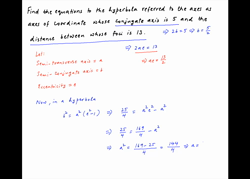 Find the equations to the hyperbola referred to the axes as
axes of coordinate whose conjugate axis is 5 and the ⇒ 2b = 5 ⇒ b = 5/2
distance between whose foci is 13. ⇒ 2ae = 13
⇒ ae = 13/2
Let:
Semi-transverse axis = a
Semi-Conjugate axis = b
Eccentricity = e
Now, in a hyperbola
b² = a²(e²-1) ⇒ 25/4 = a²e² - a²
⇒ 25/4 = 169/4 - a²
⇒ a² = 169-25/4 = 144/4 ⇒ a =